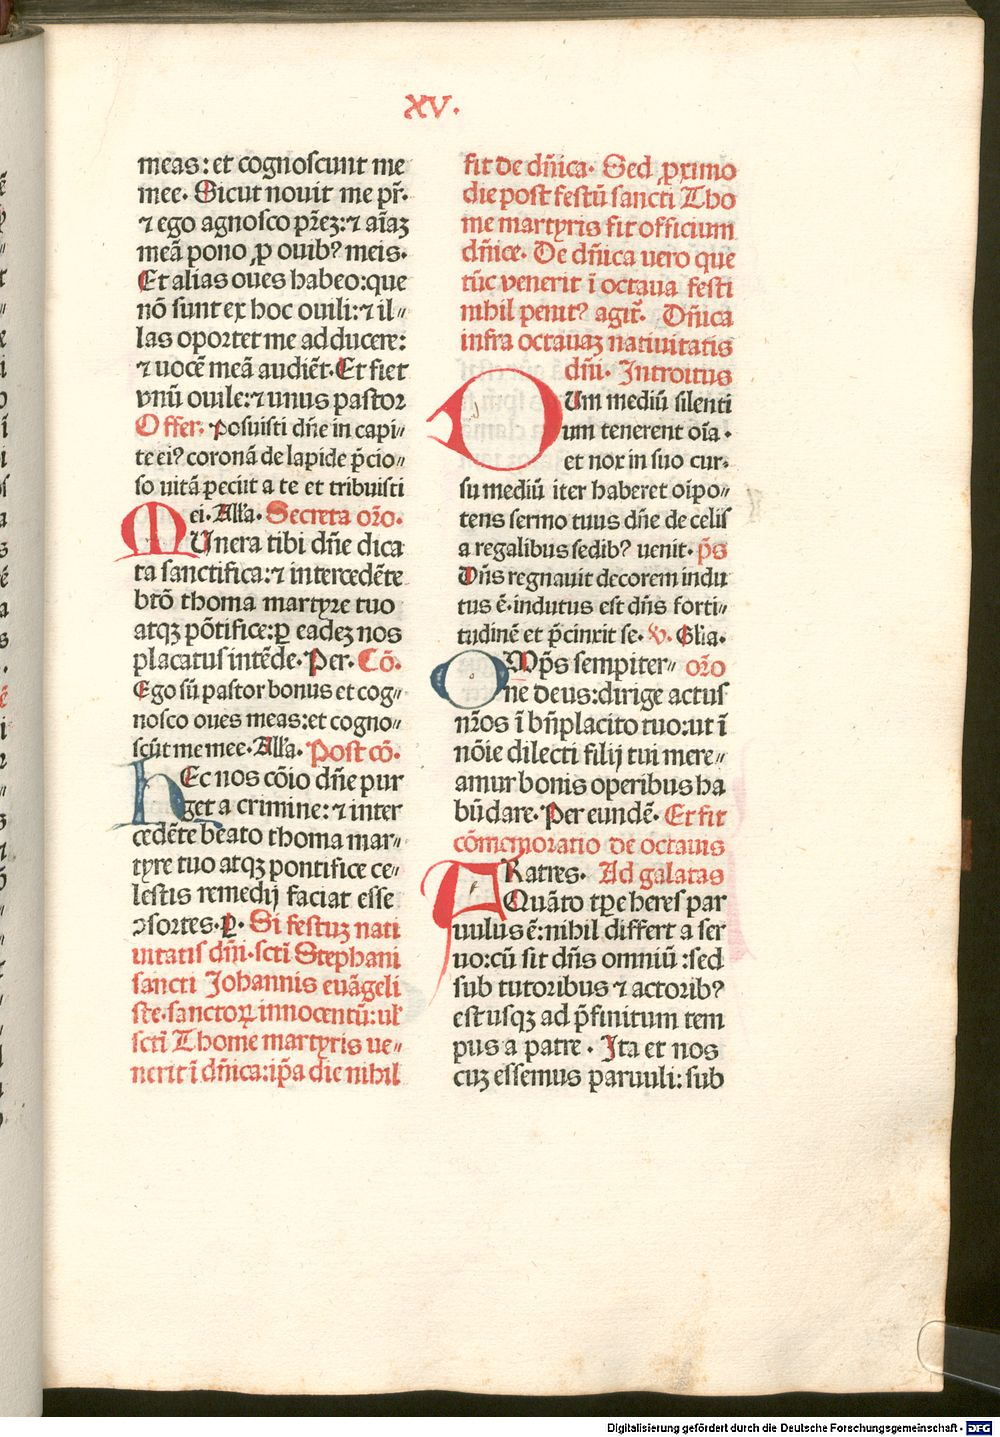 XV.
meas: et cognoscunt me
mee. Sicut novit me pr̄.
⁊ ego agnosco pr̄eꝫ:⁊ aīaꝫ
meā pono ꝓ ouibꝰ meis.
Et alias oues habeo:que
nō sunt ex hoc ouili:⁊ il⸗
las oportet me adducere:
⁊ uocē meā audiēt. Et fiet
vnū ouile:⁊ unus pastor
Offer. Posuisti dn̄e in capi⸗
te eiꝰ coronā de lapide p̄cio⸗
so uitā peciit a te et tribuisti
ei. All'a. Secreta or̄o.
MUnera tibi dn̄e dica
ta sanctifica:⁊ intercedēte
btō thoma martyre tuo
atqꝫ pōtifice:ꝑ eadeꝫ nos
placatus intēde. Per. Cō.
Ego sū pastor bonus et cog⸗
nosco oues meas:et cogno⸗
scūt me mee. All'a. Post cō.
hEc nos cōio dn̄e pur
get a crimine:⁊ inter
cedēte beato thoma mar⸗
tyre tuo atqꝫ pontifice ce⸗
lestis remedij faciat esse
ↄsortes. ꝑ. Si festuꝫ nati
uitatis dn̄i. scti Stephani
sancti Johannis euāgeli
ste. sanctoꝝ innocentū: ul'
scti Thome martyris ue⸗
nerit ī dn̄ica:ip̄a die nihil
fit de dn̄ica. Sed ꝓximo
die post festū sancti Tho
me martyris fit officium
dn̄ice. De dn̄ica uero que
tūc venerit ī octaua festi
nihil penitꝰ agit̄. Dn̄ica
infra octauaꝫ nativitatis
dn̄i. Introitus
DUm mediū silenti
um tenerent oīa.
et nox in suo cur⸗
su mediū iter haberet oīpo⸗
tens sermo tuus dn̄e de celis
a regalibus sedibꝰ uenit. p̄s
Dn̄s regnauit decorem indu
tus ē. indutus est dn̄s forti⸗
tudinē et p̄cinxit se. V. Gl'ia.
OMp̄s sempiter⸗ or̄o
ne deus:dirige actus
nr̄os ī bn̄placito tuo:ut ī
nōie dilecti filij tui mere⸗
amur bonis operibus ha
būdare. Per eundē. Et fit
cōmemoratio de octauis
FRatres. Ad galatas
Quāto tp̄e heres par
uulus ē:nihil differt a ser
uo:cū sit dn̄s omniū :sed
sub tutoribus ⁊ actoribꝰ
est usqꝫ ad p̄finitum tem
pus a patre. Ita et nos
cuꝫ essemus paruuli: sub
Digitalisierung gefördert durch die Deutsche Forschungsgemeinschaft - DFG